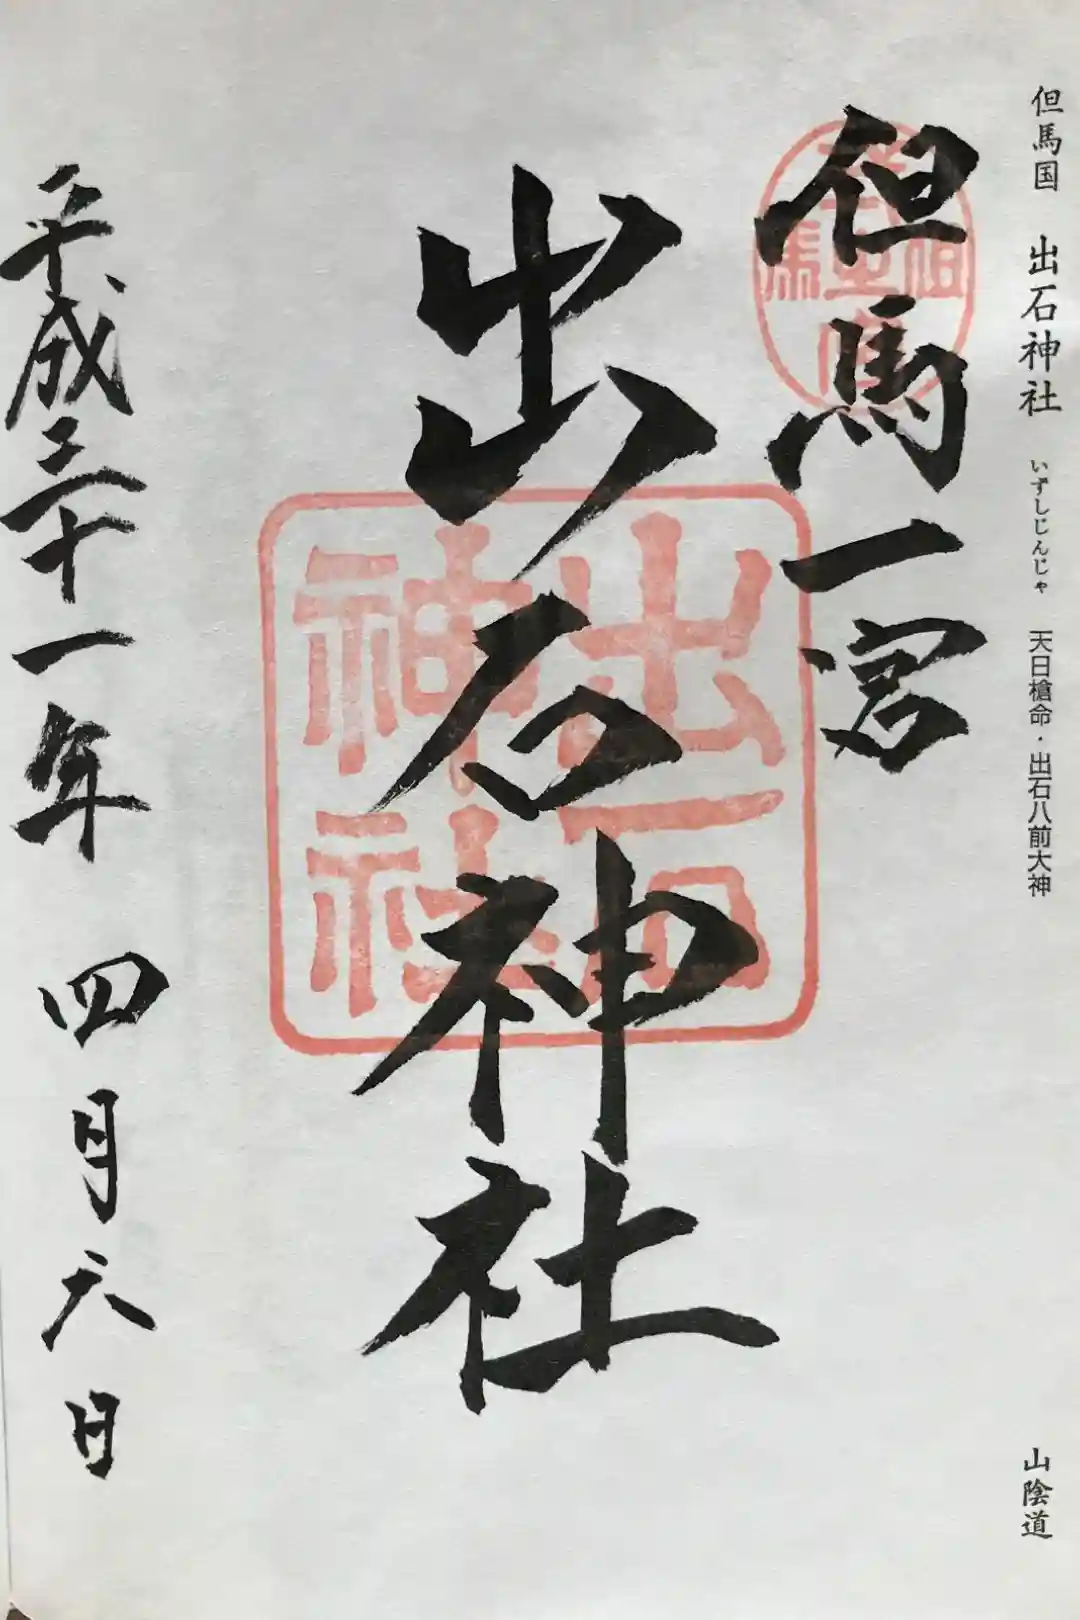 但馬国 出石神社 いずしじんじゃ 天日槍命・出石八前大神 山陰道
但馬一宮
出石神社
出石
神社
平成三十一年 四月六日